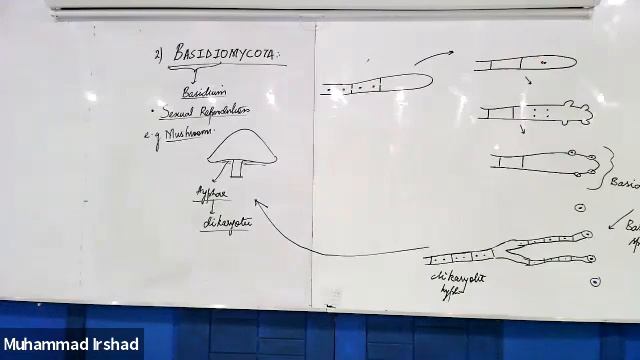 2) BASIDIOMYCOTA:
Basidium
• Sexual Reproduction
e.g Mushroom
Hyphae
dikaryotic
Basid
Bas
dikaryotic
hypha
Muhammad Irshad